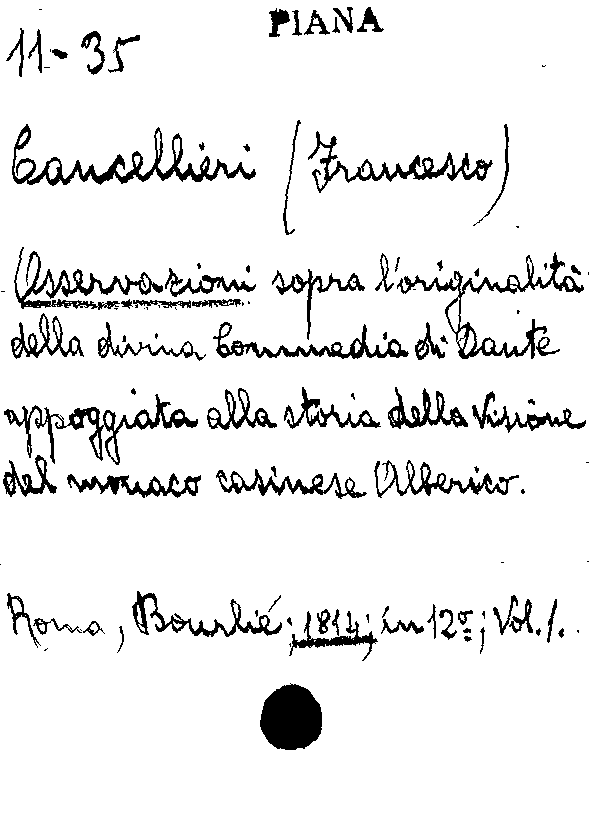 PIANA
11-35
Cancellieri (Francesco)
Osservazioni sopra l'originalità
della divina Commedia di Dante
appoggiata alla storia della Visione
del monaco casinese Alberico.
Roma, Bourlié; 1814; in 12º; Vol. 1.